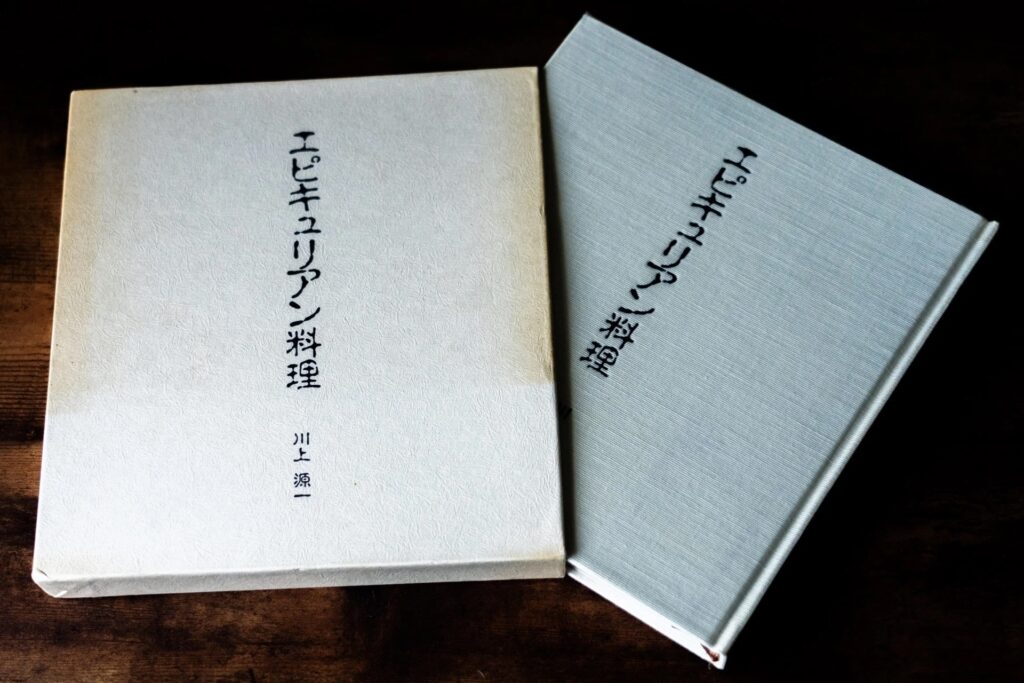 エピキュリアン料理
川上源一
エピキュリアン料理